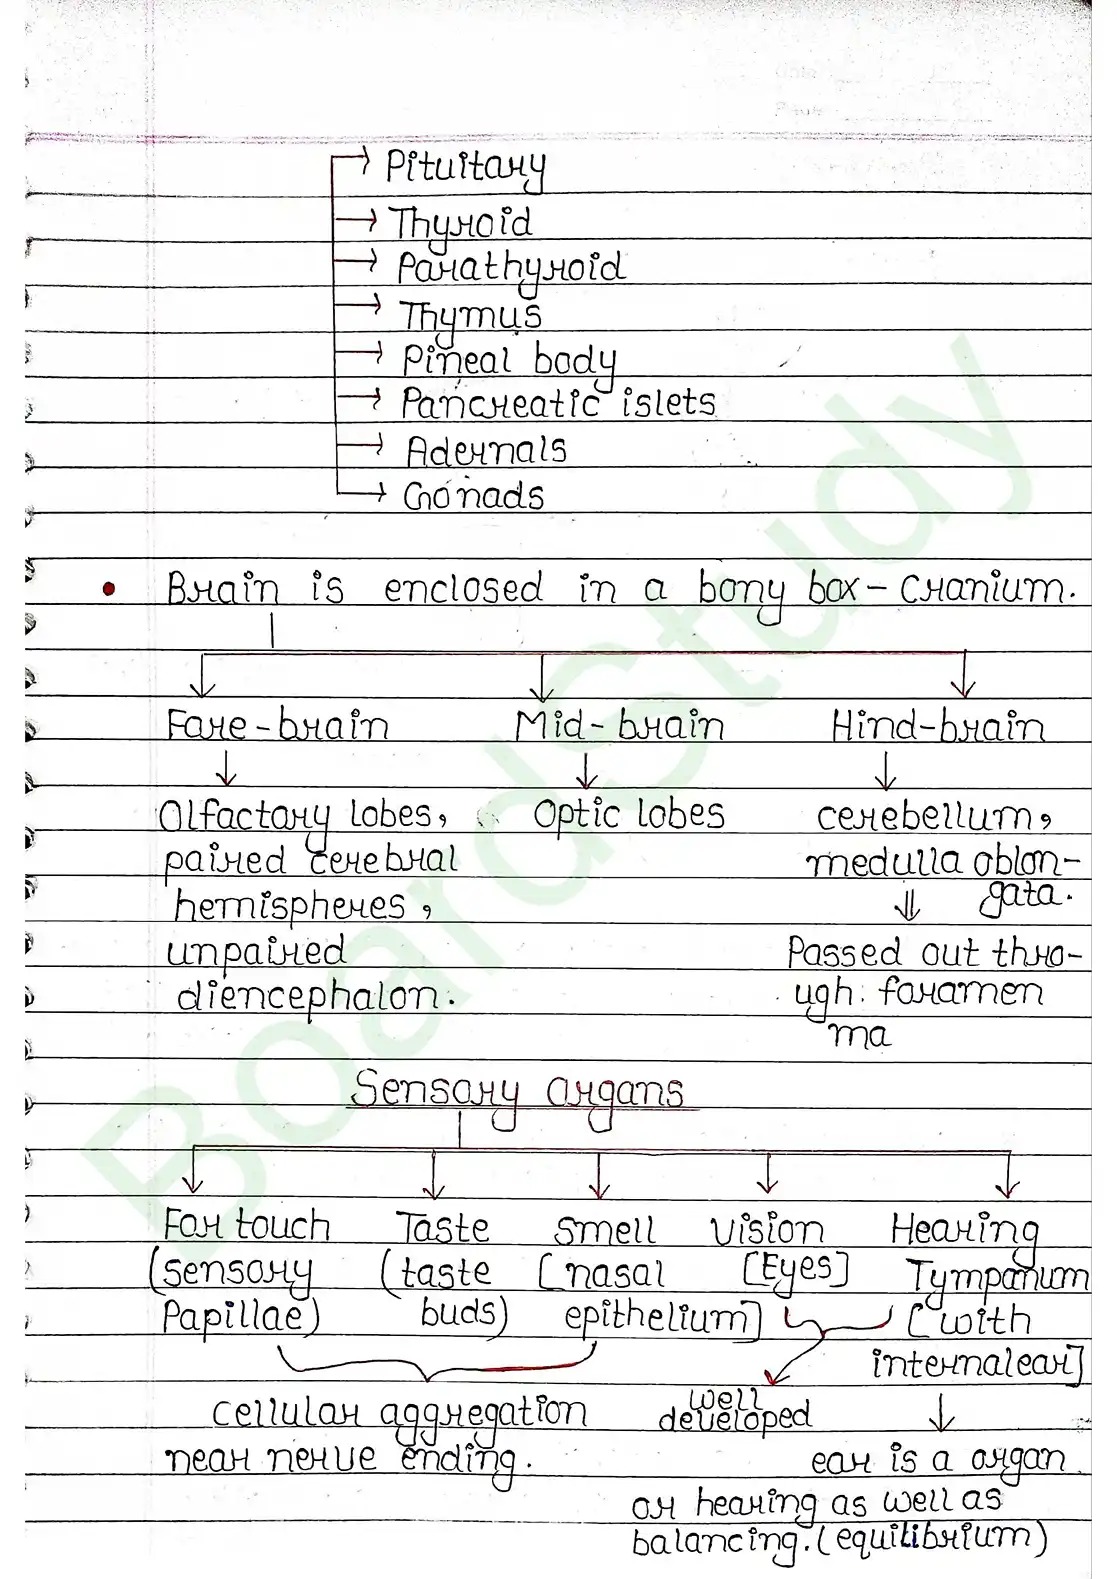 Pituitary
Thyroid
Parathyroid
Thymus
Pineal body
Pancreatic islets
Adernals
Gonads
• Brain is enclosed in a bony box - Cranium.
Fore-brain Mid-brain Hind-brain
Olfactory lobes, Optic lobes cerebellum,
paired cerebral medulla oblon-
hemispheres, gata.
unpaired Passed out thro-
diencephalon. ugh foramen
ma
Sensory organs
For touch Taste Smell Vision Hearing
(sensory (taste [nasal [Eyes] Tympanum
Papillae) buds) epithelium] [with
internal ear]
cellular aggregation well
developed
near nerve ending. ear is a organ
or hearing as well as
balancing. (equilibrium)
BoardStudy